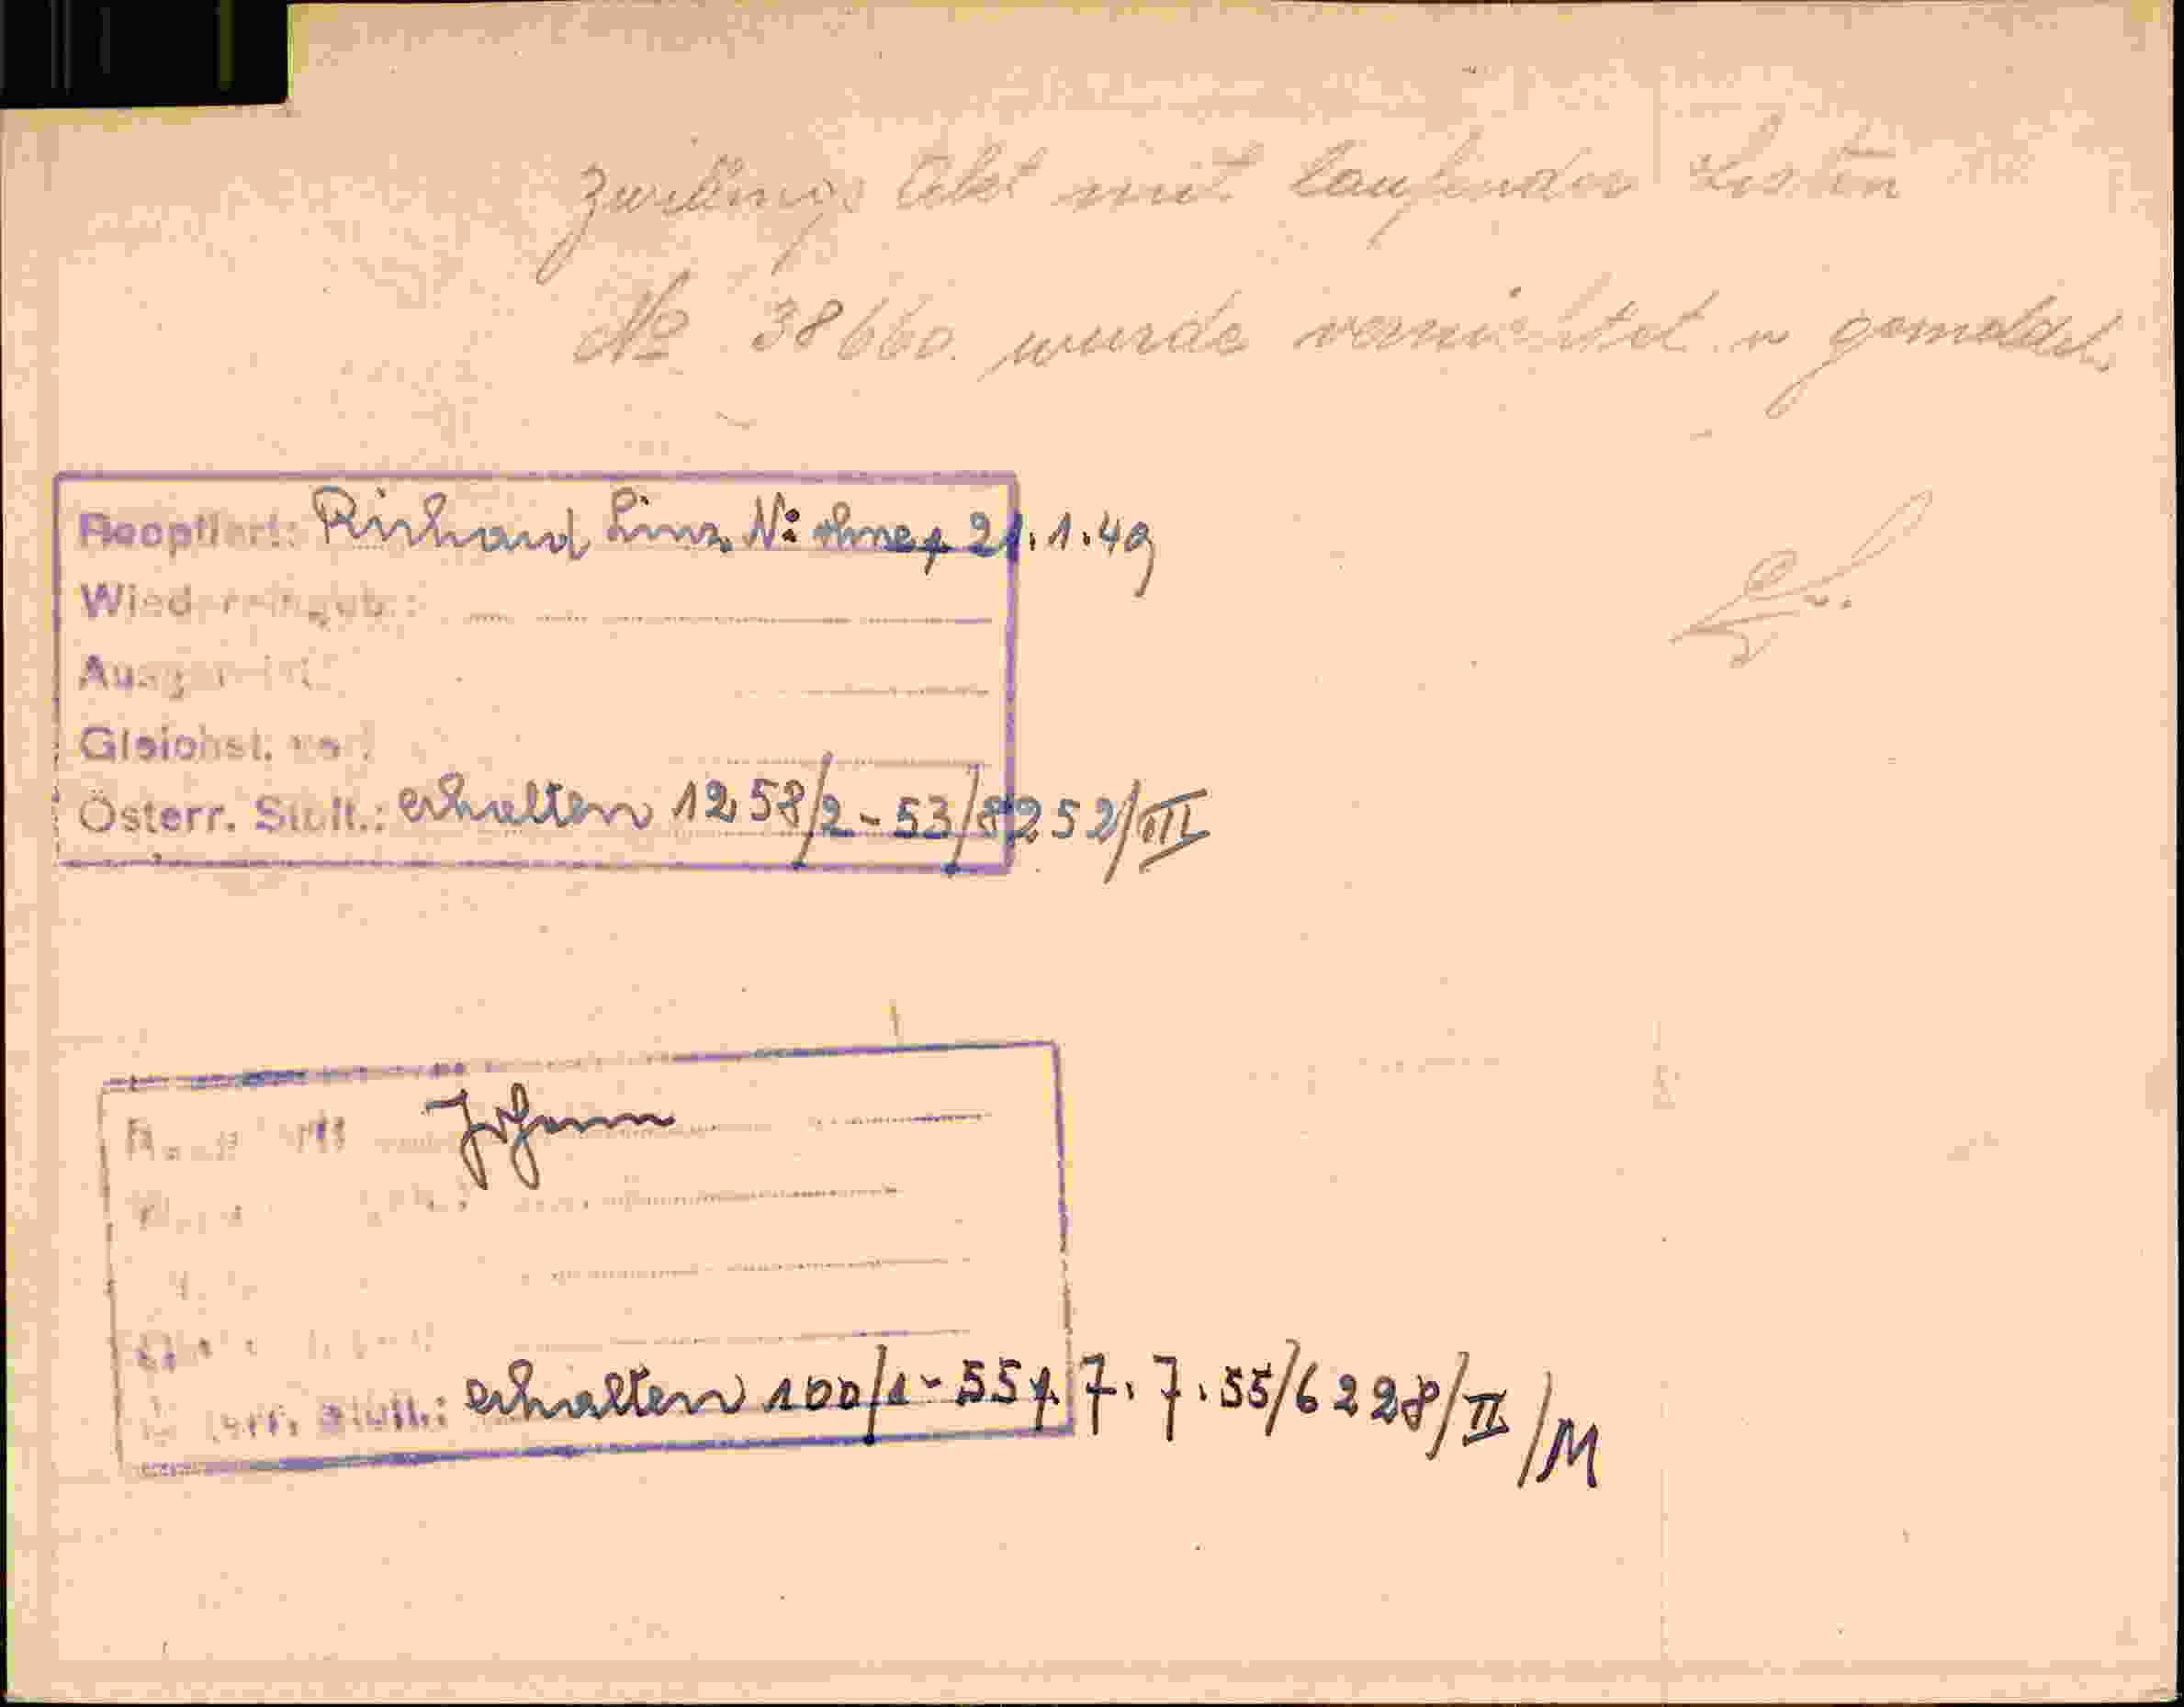 Zwillings Akt mit laufender Listen
No 38660. wurde vernichtet u gemeldet.
Reoptiert: Richard Linz N: ohne, 21.1.49
Wiedereingeb.:
Ausgereist:
Gleichst. verl.
Österr. Stbft.: erhalten 1258/2-53/8252/III
Johann
erhalten 100/1-55, 7.7.55/6228/II/M